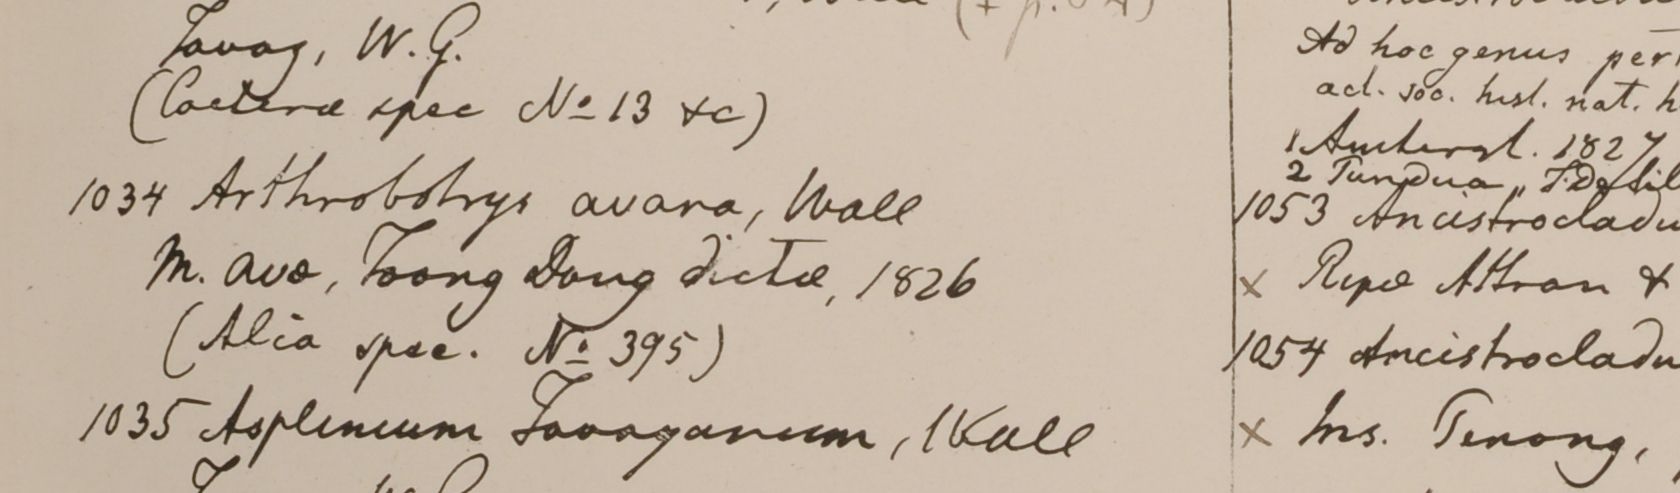 Tavoy, W. G.
(Caeterae spec No 13 &c)
1034 Arthrobotrys avana, Wall
M. Ava, Toong Dong dictae, 1826
(Alia spec. No 395)
1035 Asplenium Tavoyanum, Wall
Ad hoc genus pert
act. soc. hist. nat. h
1 Amherst. 1827
2 Pundua,, F. De Sil
1053 Ancistrocladu
x Ripae Attran &
1054 Ancistrocladu
x Ins. Penang,